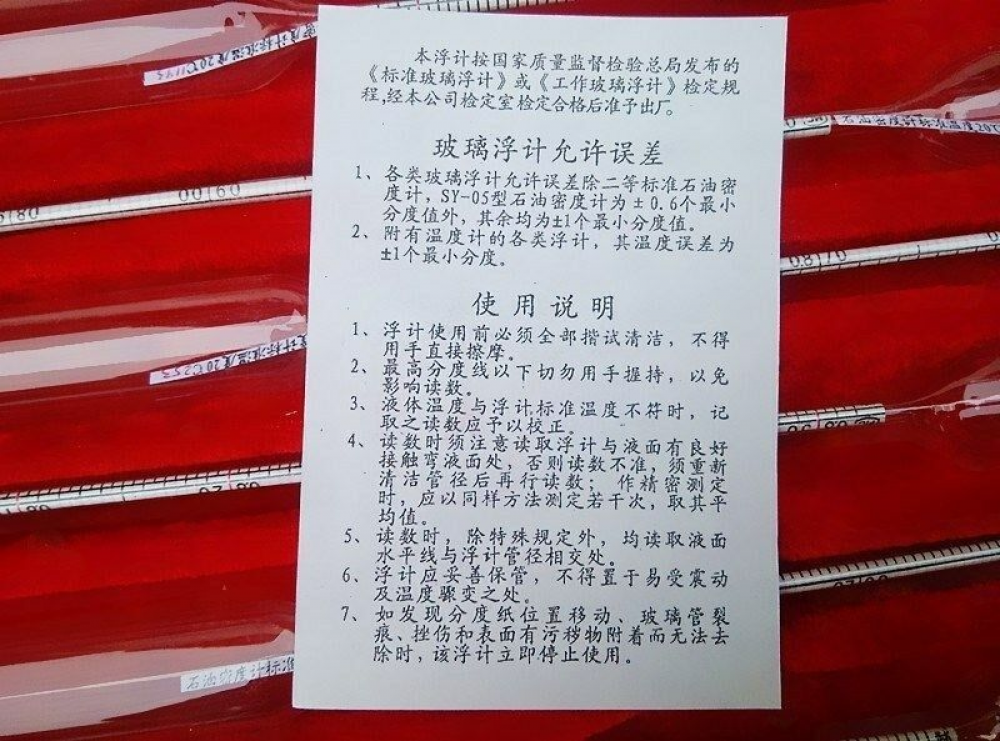 本浮计按国家质量监督检验总局发布的
《标准玻璃浮计》或《工作玻璃浮计》检定规
程,经本公司检定室检定合格后准予出厂。
玻璃浮计允许误差
1、各类玻璃浮计允许误差除二等标准石油密
度计，SY-05型石油密度计为±0.6个最小
分度值外，其余均为±1个最小分度值。
2、附有温度计的各类浮计，其温度误差为
±1个最小分度。
使用说明
1、浮计使用前必须全部揩试清洁，不得
用手直接擦摩。
2、最高分度线以下切勿用手握持，以免
影响读数。
3、液体温度与浮计标准温度不符时，记
取之读数应予以校正。
4、读数时须注意读取浮计与液面有良好
接触弯液面处，否则读数不准，须重新
清洁管径后再行读数；作精密测定
时，应以同样方法测定若干次，取其平
均值。
5、读数时，除特殊规定外，均读取液面
水平线与浮计管径相交处。
6、浮计应妥善保管，不得置于易受震动
及温度骤变之处。
7、如发现分度纸位置移动、玻璃管裂
痕、挫伤和表面有污秽物附着而无法去
除时，该浮计立即停止使用。
密度计标准温度20℃
石油密度计标准温度20℃
度计标准温度20℃253
石油密度计标准
00|60
0.81/0